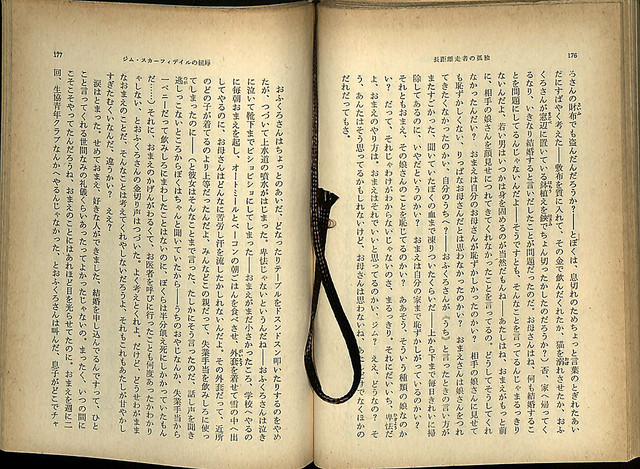 176
長距離走者の孤独
ろさんの財布でも盗んだんだろうか?――とぼくは、息切れのためちょっと言葉のとぎれたあい
だにすばやく考えた――敷布を質に入れて、その金で飲んだくれたか、猫を溺れさせたか、おふ
くろさんが窓辺に置いている鉢植えを鋏でちょん切ったかしたのだろうか? 否、家へ帰ってく
るなり、いきなり結婚すると言いだしたことが問題だったのだ。お母さんはね、何も結婚するこ
とを問題にしてるんじゃないんだよ――そうですとも、そんなことを言ってるんじゃまるっきり
ないんだよ、若い男はいつかは身を固めるのが当然だもんね――あたしはね、おまえがもっと前
に、相手の娘さんを顔見せにつれてきてくれなかったことを言ってるの。どうしてそうしてくれ
なかったんだい? おまえは自分のお母さんが恥ずかしかったのかい? 相手の娘さんに見せて
も恥ずかしくない、りっぱなお母さんだとは思わなかったのかい? おまえさんは娘さんをつれ
てきたくなかったのかい、自分のうちへ――おふくろさんが、〈うち〉と言ったときの言い方が
またすごかった、聞いていたぼくの血まで凍りついたくらいだ――上から下まで毎日きれいに掃
除してあるのに、いやだというのかい? おまえは自分の家まで恥ずかしがっているのかい?
それともおまえ、その娘さんのことを恥じてるのかい? ああそう、そういう種類の娘なのか
い? だって、それじゃわけがわからないじゃないのさ、まるっきり、それにだいいち、卑怯だ
よ、おまえのやり方は。おまえはそれでいいと思ってるのかい、ジム? ええ、どうなの? そ
う、あんたはそう思ってるかもしれないけど、お母さんは思わないね、
だれだってもさ。
177
ジム・スカーフィデイルの屈辱
おふくろさんはちょっとのあいだ、どなったりテーブルをドスンドスン叩いたりするのをやめ
たが、つづいて上水道の噴水がはじまった。卑怯じゃないというんだね――おふくろさんは泣き
に泣いて靴下までビショビショにしてしまった――おまえがまだ小さかったころ、学校へやるの
に毎朝おまえを起し、オートミールとベーコンの朝ごはんを食べさせ、外套を着せて雪の中へ出
してやるのに、お母さんはどんなに苦労し汗を流したかしれないんだよ、その外套だって、近所
のどの子が着てるのより上等だったんだよ、みんなどこの親だって、失業手当を飲みしろに使っ
てしまったのに――(と彼女はそんなことまで言った、たしかにそう言ったのだ、話し声を聞き
逃しっこないところからぼくはちゃんと聞いていたから――うちのおやじなんか、失業手当から
一ペニーだって飲みしろにまわしたことはないのに、ぼくらは半分餓え死にしかかっていたもん
だ……)それに、おまえのかげんがわるくて、お医者を呼びに行ったことも何度あったかわかり
ゃしない、とおふくろさんの金切り声はつづいた。よく考えとくれよ、だけど、どうせわがまま
なおまえのことだ、そんなことは考えてくれやしないだろうよ、それもこれもあたしが甘やかし
すぎたむくいなんだ、違うかい? ええ?
涙はとまった。せめておまえ、好きな人ができました、結婚を申し込んでるんですって、ひと
こと言ってくれる世間なみの礼儀くらいあったってよかったじゃないの。まったく、いつの間に
こそこそやってたんだろうね、おまえのことにはあれほど目を光らせてたのに。おまえを週に二
回、生協青年クラブなんかへやるんじゃなかった、とおふくろさんは叫んだ。息子がどこでチャ